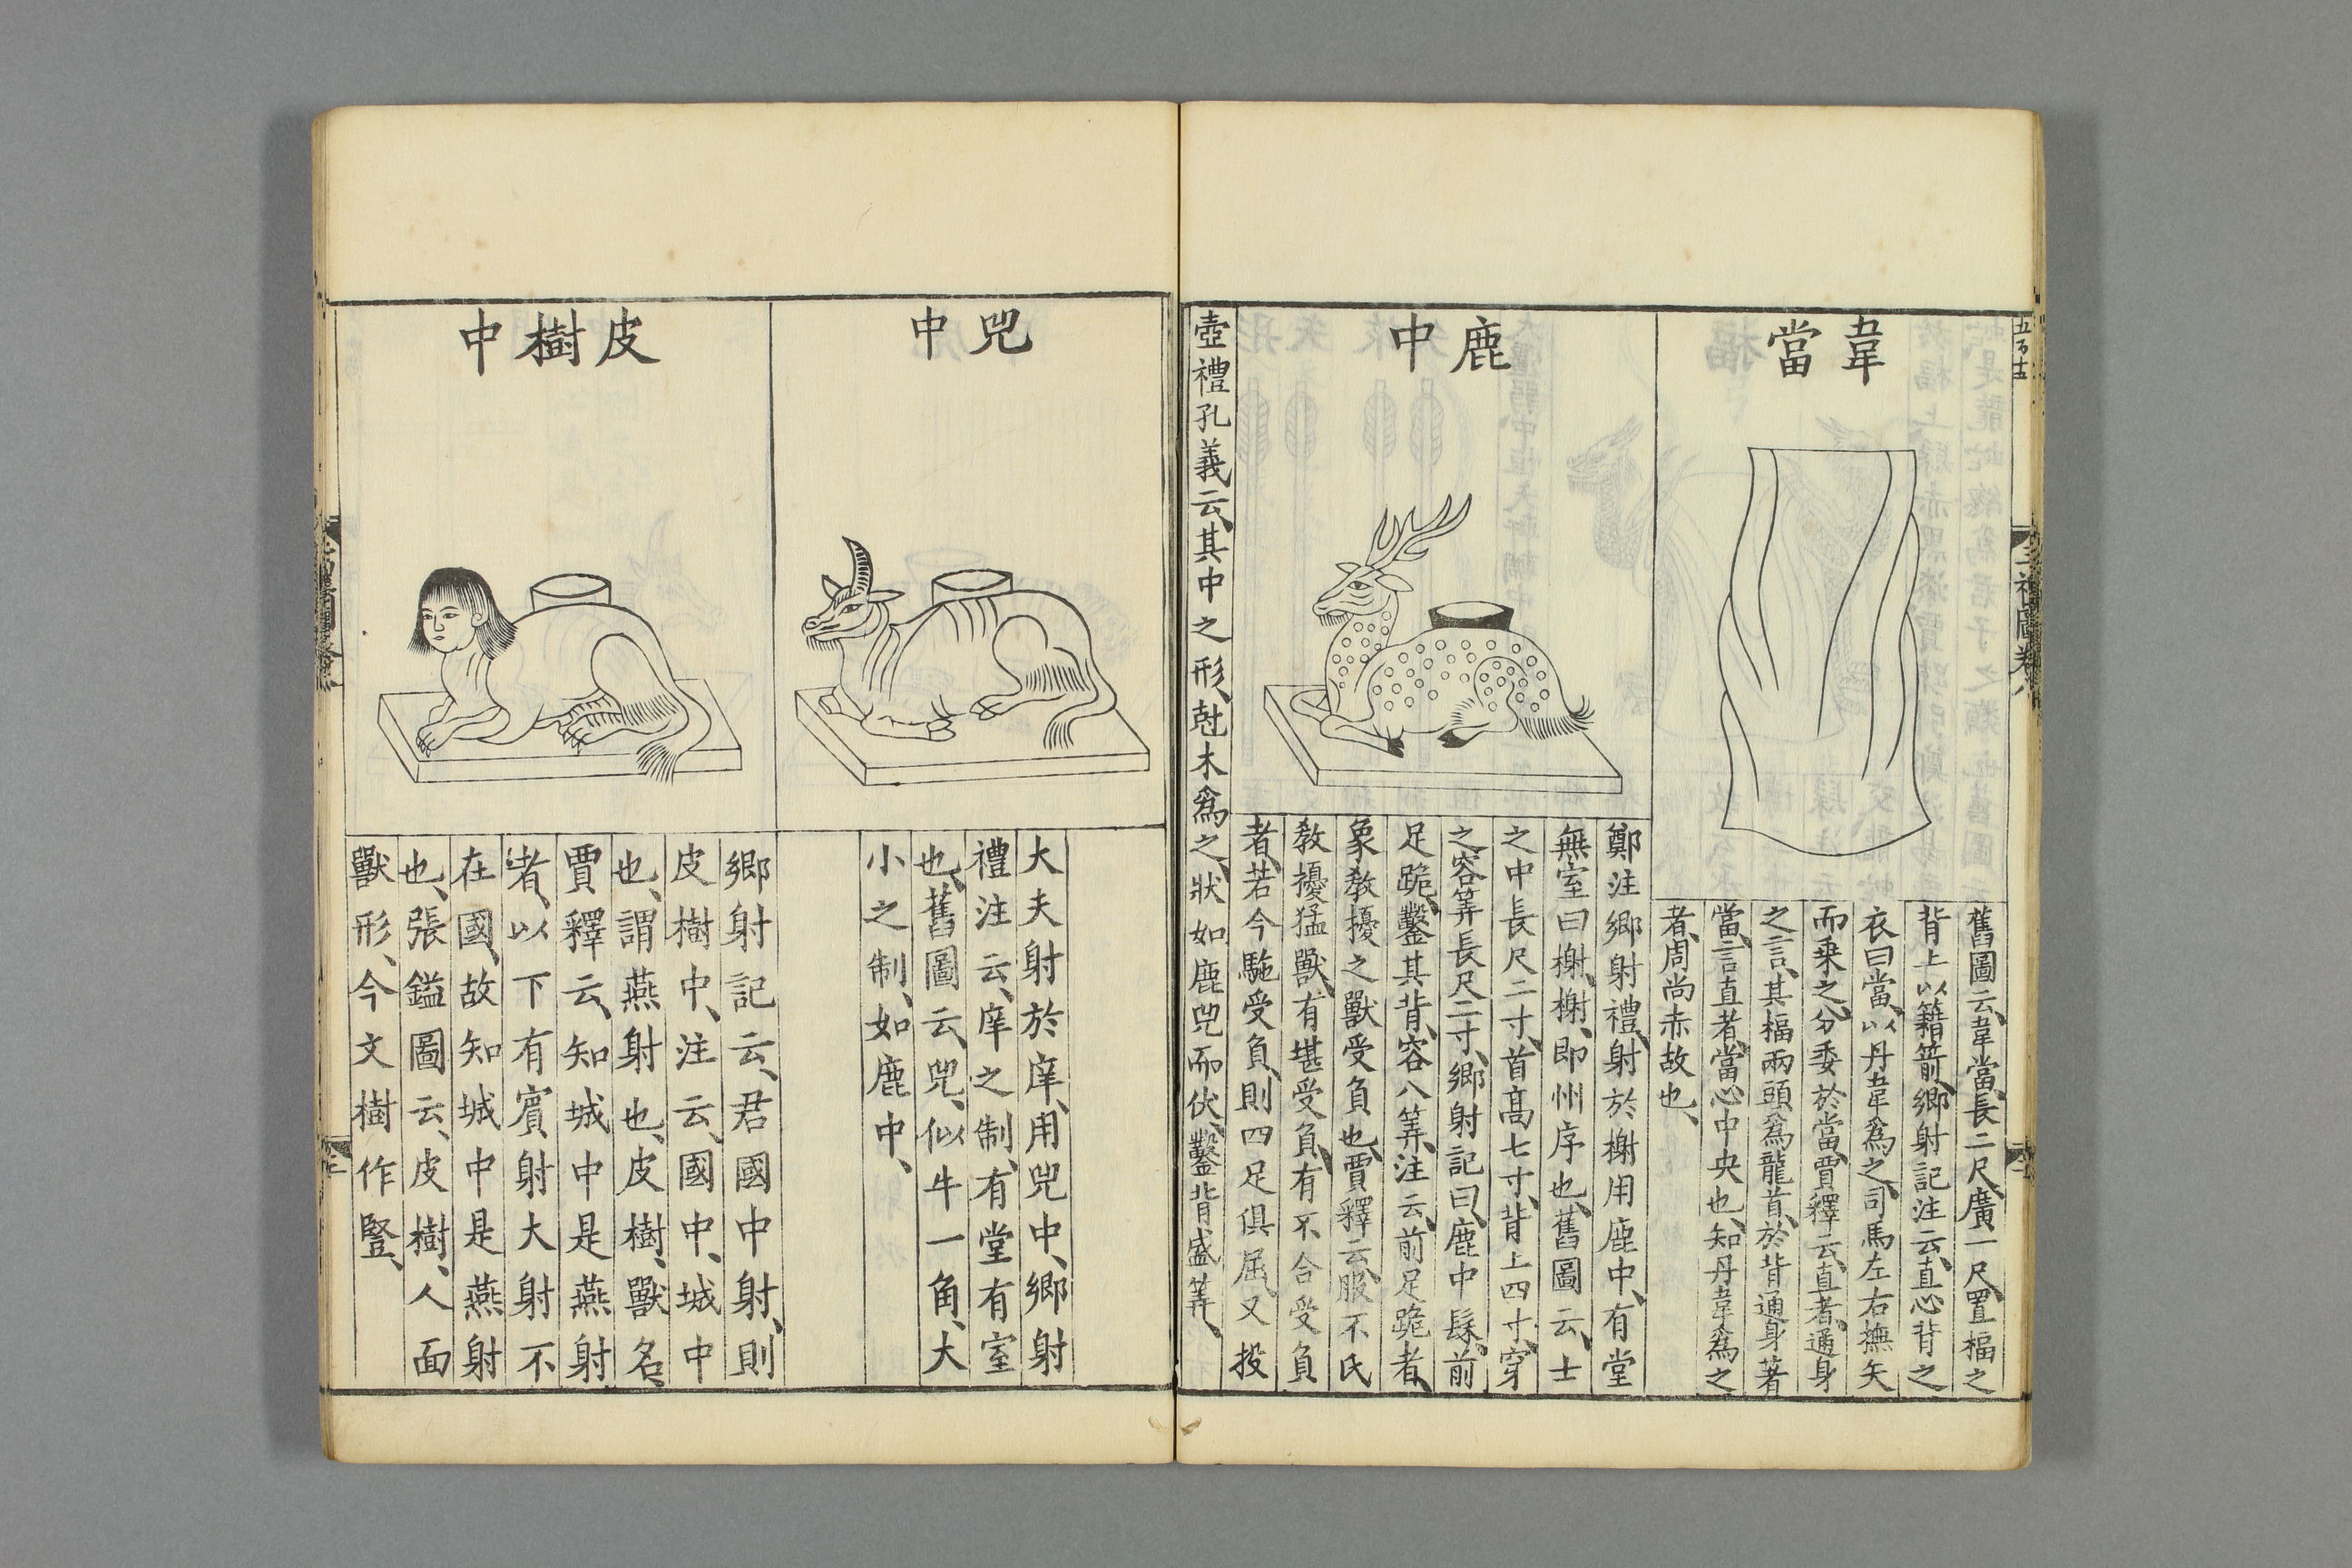 韋當
舊圖云、韋當、長二尺、廣一尺、置楅之
背上、以籍箭、鄉射記注云、直心背之
衣曰當、以丹韋爲之、司馬左右撫矢
而乗之、分委於當、賈釋云、直者、通身
之言、其楅兩頭爲龍首、於背通身著
當、言直者、當心中央也、知丹韋爲之
者、周尚赤故也、
鹿中
鄭注鄉射禮、射於榭用鹿中、有堂
無室曰榭、榭、即州序也、舊圖云、士
之中長尺二寸、首高七寸、背上四寸、穿
之、容筭長尺二寸、鄉射記曰、鹿中髹、前
足跪、鑿其背、容八筭、注云、前足跪者、
象敎擾之獸受負也、賈釋云、服不氏
敎擾猛獸、有堪受負、有不合受負
者、若今駞受負、則四足俱屈、又投
壺禮孔義云、其中之形、尅木爲之、狀如鹿兕而伏、鑿背盛筭、
三禮圖卷八
兕中
大夫射於庠、用兕中、鄉射
禮注云、庠之制、有堂有室
也、舊圖云、兕、似牛一角、大
小之制、如鹿中、
皮樹中
鄉射記云、君國中射、則
皮樹中、注云、國中、城中
也、謂燕射也、皮樹、獸名、
賈釋云、知城中是燕射
者、以下有賓射大射不
在國、故知城中是燕射
也、張鎰圖云、皮樹、人面
獸形、今文樹作豎、